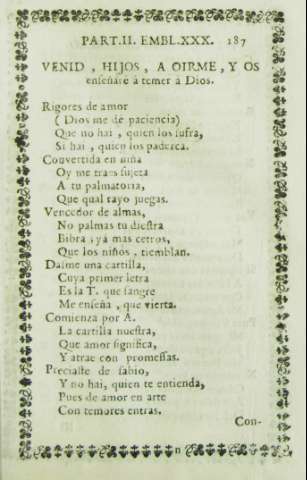 PART.II. EMBL.XXX. 187
VENID, HIJOS, A OIRME, Y OS
enseñarè à temer à Dios.
Rigores de amor
( Dios me dè paciencia)
Que no hai, quien los sufra,
Si hai, quien los padezca.
Convertida en niña
Oy me traes sujeta
A tu palmatoria,
Que qual rayo juegas.
Vencedor de almas,
No palmas tu diestra
Bibra, yà mas cetros,
Que los niños, tiemblan.
Dasme una cartilla,
Cuya primer letra
Es la T. que sangre
Me enseña, que vierta.
Comienza por A.
La cartilla nuestra,
Que amor significa,
Y atrae con promessas.
Preciaste de sabio,
Y no hai, quien te entienda,
Pues de amor en arte
Con temores entras.
Con-